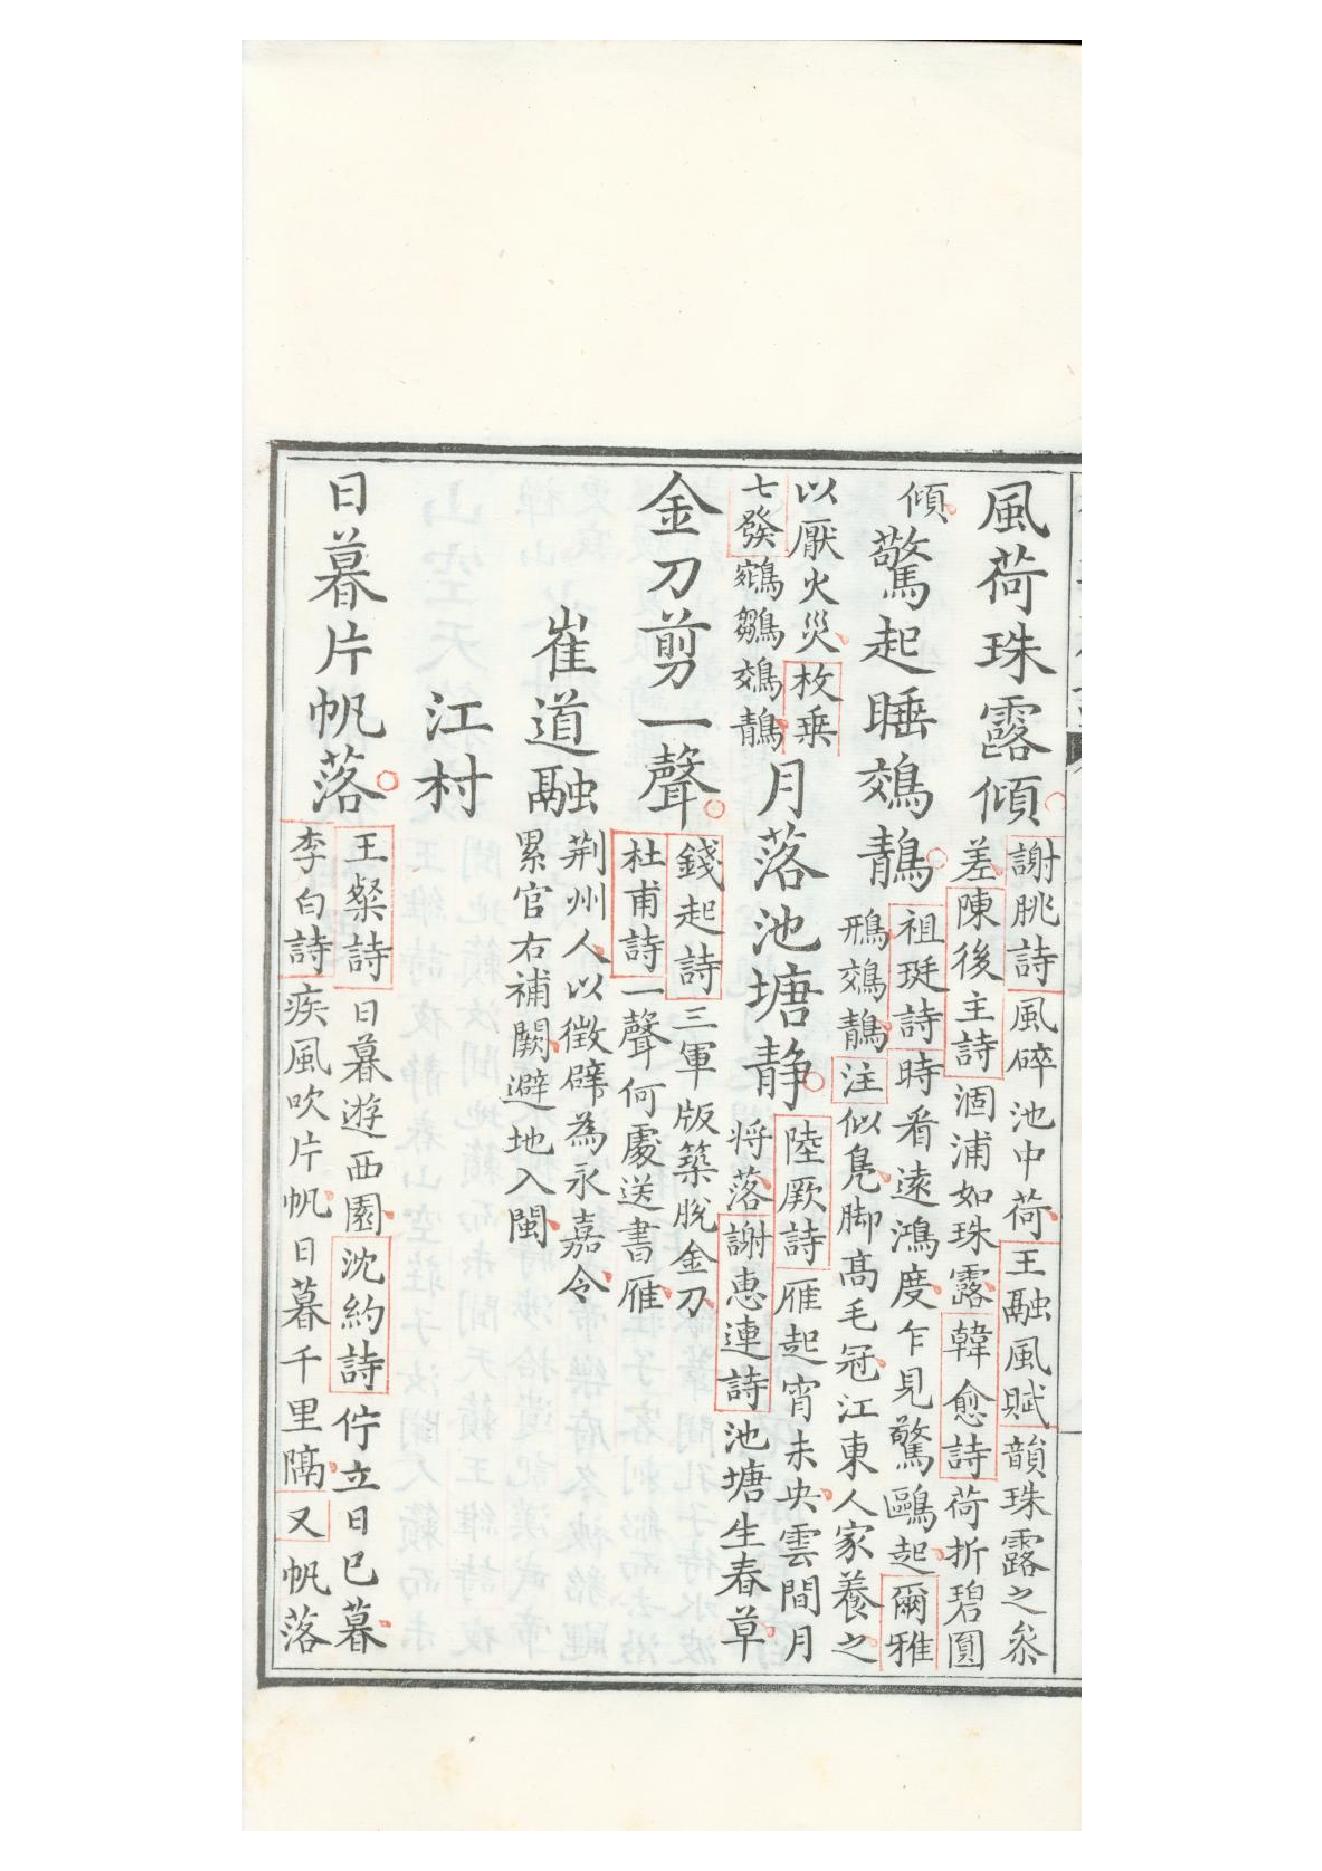 風荷珠露傾
謝朓詩風碎池中荷王融風賦韻珠露之參
差陳後主詩涸浦如珠露韓愈詩荷折碧圓
傾
驚起睡鵁鶄
祖珽詩時看遠鴻度乍見驚鷗起爾雅
鳽鵁鶄注似鳧脚高毛冠江東人家養之
以厭火災枚乗
七發鵷鶵鵁鶄
月落池塘静
陸厥詩雁起宵未央雲間月
将落謝惠連詩池塘生春草
金刀剪一聲
錢起詩三軍版築脫金刀
杜甫詩一聲何處送書雁
崔道融
荆州人以徵辟為永嘉令
累官右補闕避地入閩
江村
日暮片帆落
王粲詩日暮遊西園沈約詩佇立日已暮
李白詩疾風吹片帆日暮千里隔又帆落